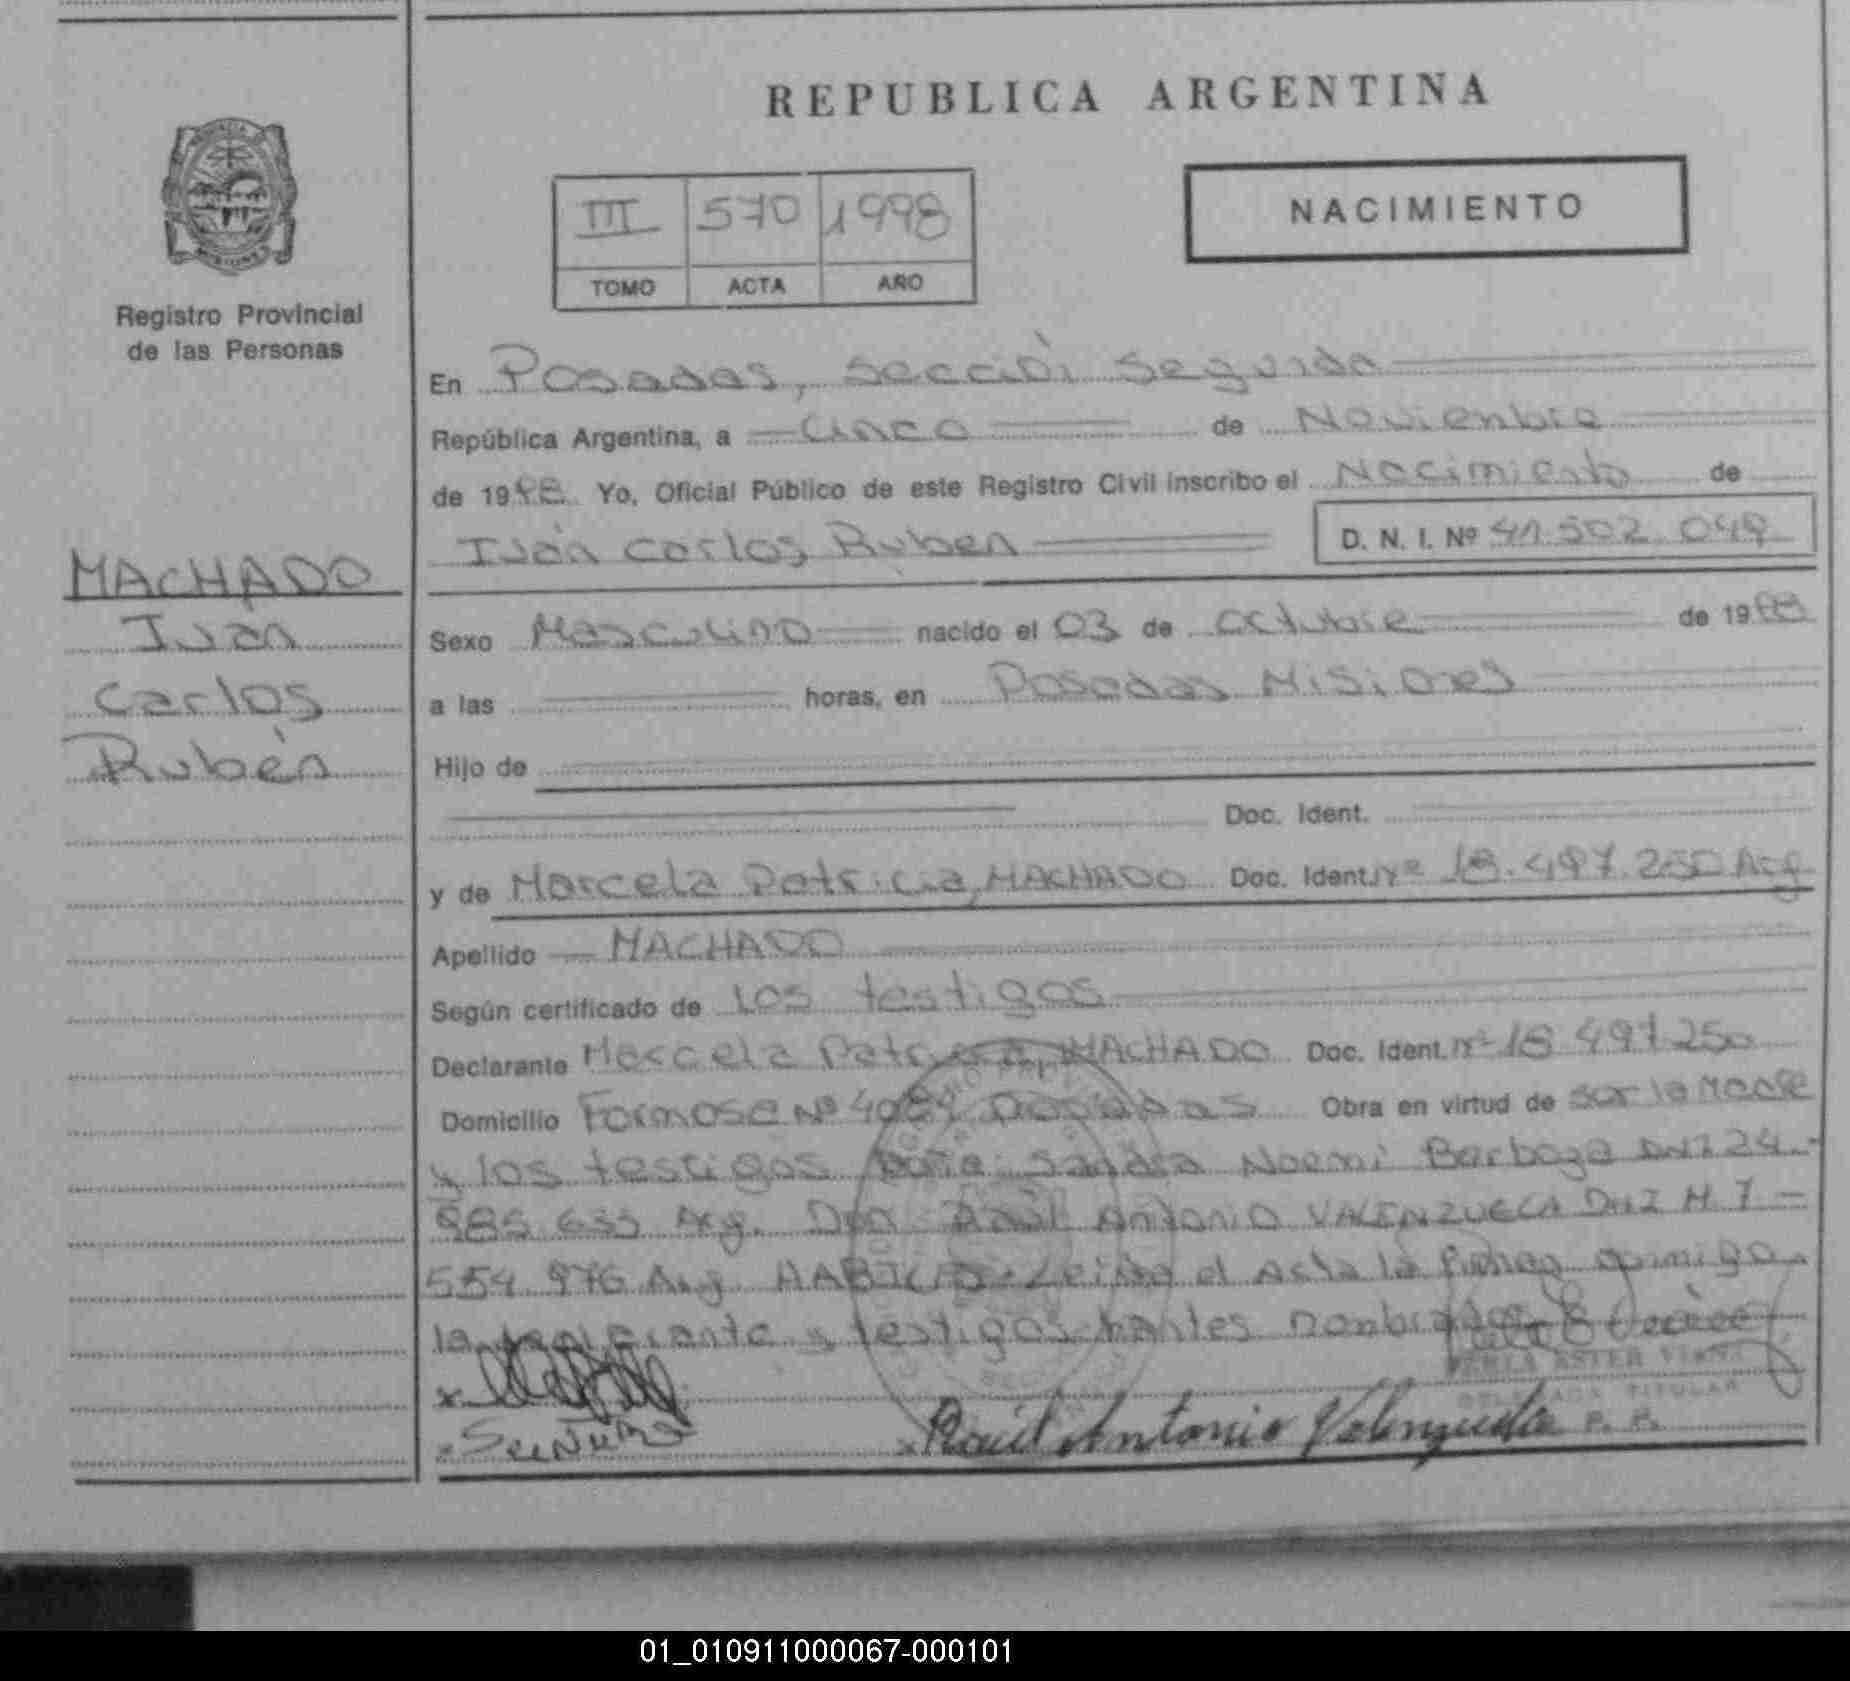 REPUBLICA ARGENTINA
III 570 1998
TOMO ACTA AÑO
NACIMIENTO
Registro Provincial
de las Personas
MACHADO
Iván
Carlos
Rubén
En Posadas, sección segunda
República Argentina, a cinco de Noviembre
de 1998 Yo, Oficial Público de este Registro Civil inscribo el Nacimiento de
Iván Carlos Ruben D. N. I. Nº 41.502.049
Sexo Masculino nacido el 03 de octubre de 1998
a las horas, en Posadas Misiones
Hijo de
Doc. Ident.
y de Marcela Patricia, MACHADO Doc. Ident. Nº 18.497.250 Arg
Apellido MACHADO
Según certificado de los testigos
Declarante Marcela Patricia MACHADO Doc. Ident. nº 18 497 250
Domicilio Formosa Nº Posadas Obra en virtud de ser la Madre
y los testigos Doña: Sandra Noemi Barboza DNI 24.-
985 633 Arg. Don Raúl Antonio VALENZUELA DNI M. 7 -
554 976 Arg HABILES. Leida el Acta la firman conmigo
la declarante y testigos nombrados
TITULAR
Raúl Antonio Valenzuela
01_010911000067-000101